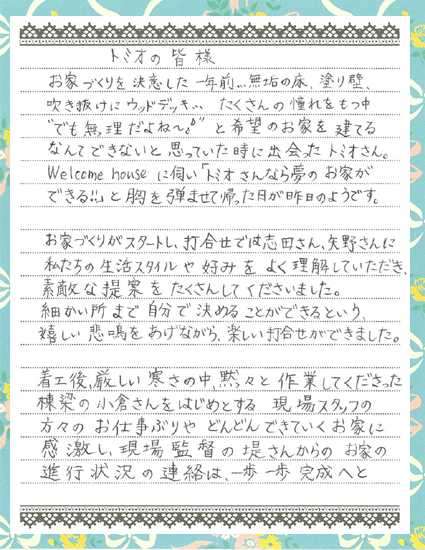 トミオの皆様
お家づくりを決意した一年前…無垢の床、塗り壁、
吹き抜けにウッドデッキ… たくさんの憧れをもつ中
"でも無理だよね〜" と希望のお家を建てる
なんてできないと思っていた時に出会ったトミオさん。
Welcome houseに伺い「トミオさんなら夢のお家が
できる!!」と胸を弾ませて帰った日が昨日のようです。
お家づくりがスタートし、打合せでは志田さん、矢野さんに
私たちの生活スタイルや好みをよく理解していただき、
素敵な提案をたくさんしてくださいました。
細かい所まで自分で決めることができるという、
嬉しい悲鳴をあげながら、楽しい打合せができました。
着工後、厳しい寒さの中、黙々と作業してくださった
棟梁の小倉さんをはじめとする現場スタッフの
方々のお仕事ぶりやどんどんできていくお家に
感激し、現場監督の堤さんからのお家の
進行状況の連絡は、一歩一歩完成へと